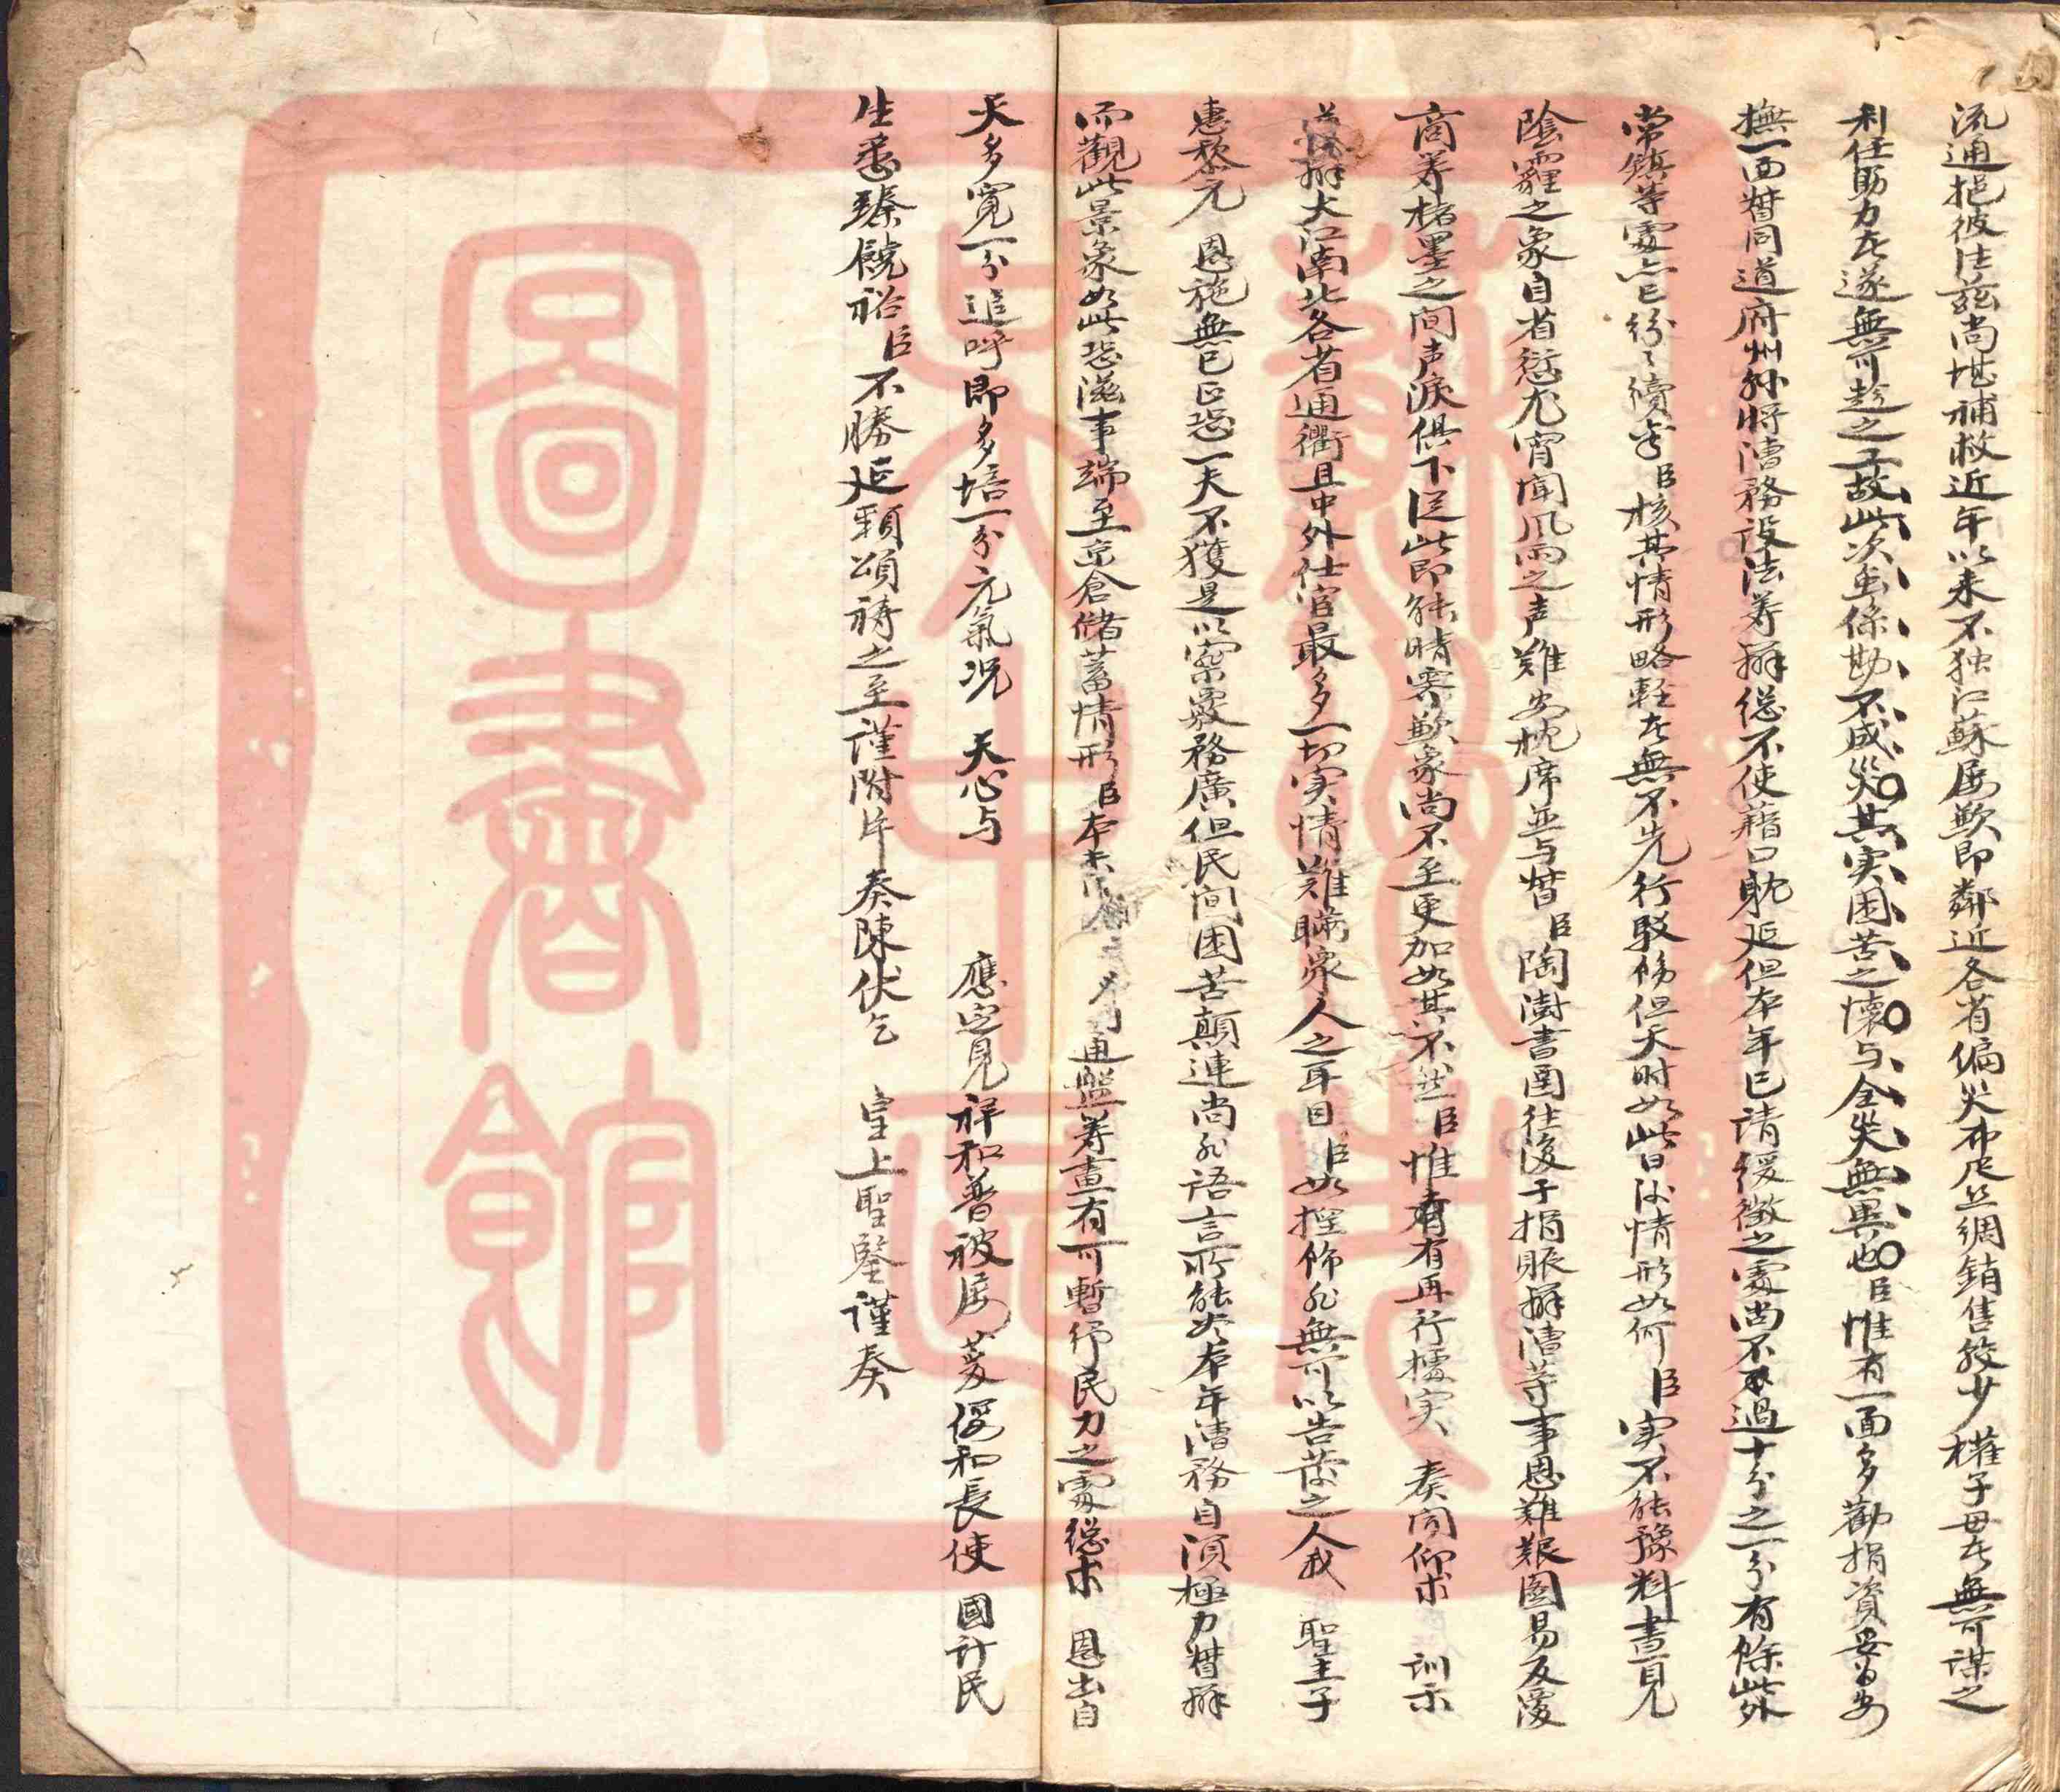 流通挹彼注茲尚堪補救近年以来不独江蘇屡歉即鄰近各省偏灾布疋丝綢銷售较少権子母者無可謀之
利任助力者遂無可趁之工故此次虽係勘不成災其实困苦之懐与全灾無異也臣惟有一面多勸捐資妥为安
撫一面督同道府州縣将漕務設法筹辦総不使藉口躭延但本年已请缓徵之處尚不過十分之一分有餘此外
常鎮等處亦已纷々續字臣核其情形略輕者無不先行駁飭但天时如此日後情形如何臣实不能豫料晝見
陰霾之象自省愆尤宵聞風雨之声難安枕席並与督臣陶澍書函往復于捐賑辦漕等事思難艱圖易反覆
商筹楮墨之间声淚俱下從此即能晴霁歉象尚不至更加如其不然臣惟有有再行據实 奏闻仰求 訓示
遵辦大江南北各省通衢且中外仕宦最多一切实情難瞞眾人之耳目臣如捏飾非無可以告發之人我 聖主子
惠黎元 恩施無已正恐一夫不獲是以案察務廣但民间困苦顛連尚非語言所能尽本年漕務自須極力督辦
而觀此景象如此恐滋事端至京倉儲蓄情形臣本未 通盤筹畫有可暫纾民力之處総求 恩出自
天多寬一分追呼即多培一分元氣况 天心与 應定見祥和普被屡 和長使 國計民
生悉臻饒裕臣不勝延頸頌祷之至謹附片奏陳伏乞 皇上聖鑒謹奏
圖書館